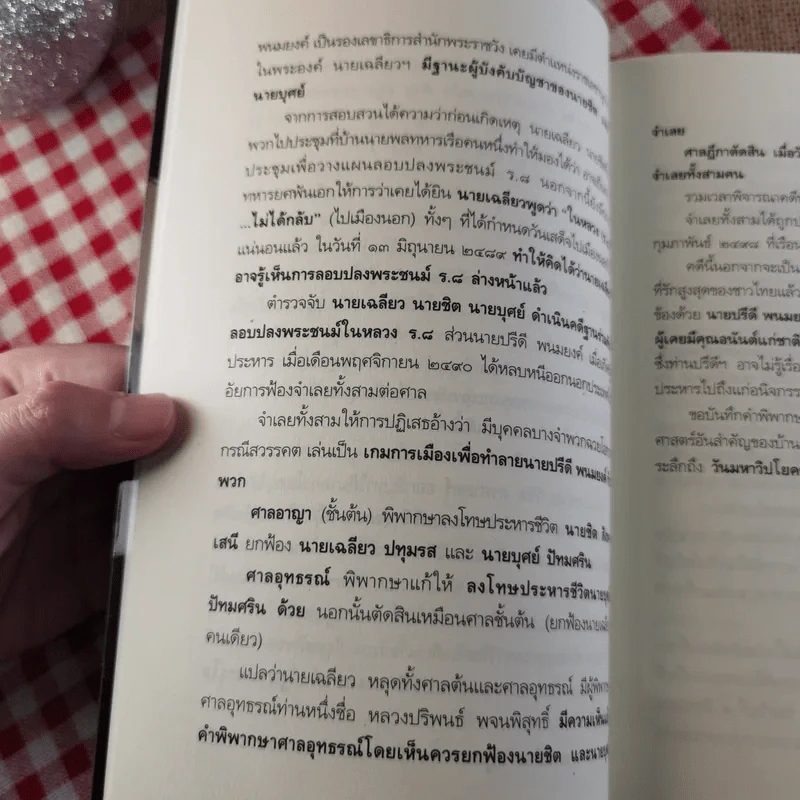 พนมยงค์ เป็นรองเลขาธิการสำนักพระราชวัง เคยมีตำแหน่ง
ในพระองค์ นายเฉลียวฯ มีฐานะผู้บังคับบัญชาของนายชิต
นายบุศย์
จากการสอบสวนได้ความว่าก่อนเกิดเหตุ นายเฉลียว
พวกไปประชุมที่บ้านนายพลทหารเรือคนหนึ่งทำให้มองได้ว่า
ประชุมเพื่อวางแผนลอบปลงพระชนม์ ร.๘ นอกจากนี้ยัง
ทหารยศพันเอกให้การว่าเคยได้ยิน นายเฉลียวพูดว่า "ในหลวง
...ไม่ได้กลับ" (ไปเมืองนอก) ทั้งๆ ที่ได้กำหนดวันเสด็จไปเมือง
แน่นอนแล้ว ในวันที่ ๑๓ มิถุนายน ๒๔๘๙ ทำให้คิดได้ว่านายเฉลียว
อาจรู้เห็นการลอบปลงพระชนม์ ร.๘ ล่างหน้าแล้ว
ตำรวจจับ นายเฉลียว นายชิต นายบุศย์ ดำเนินคดีฐาน
ลอบปลงพระชนม์ในหลวง ร.๘ ส่วนนายปรีดี พนมยงค์ เมื่อ
ประหาร เมื่อเดือนพฤศจิกายน ๒๔๙๐ ได้หลบหนีออกนอกประเทศ
อัยการฟ้องจำเลยทั้งสามต่อศาล
จำเลยทั้งสามให้การปฏิเสธอ้างว่า มีบุคคลบางจำพวกฉวยโอกาส
กรณีสวรรคต เล่นเป็น เกมการเมืองเพื่อทำลายนายปรีดี พนมยงค์
พวก
ศาลอาญา (ชั้นต้น) พิพากษาลงโทษประหารชีวิต นายชิต
เสนี ยกฟ้อง นายเฉลียว ปทุมรส และ นายบุศย์ ปัทมศริน
ศาลอุทธรณ์ พิพากษาแก้ให้ ลงโทษประหารชีวิต
ปัทมศริน ด้วย นอกนั้นตัดสินเหมือนศาลชั้นต้น (ยกฟ้อง
คนเดียว)
แปลว่านายเฉลียว หลุดทั้งศาลต้นและศาลอุทธรณ์ มี
ศาลอุทธรณ์ท่านหนึ่งชื่อ หลวงปริพนธ์ พจนพิสุทธิ์ มีความเห็น
คำพิพากษาศาลอุทธรณ์โดยเห็นควรยกฟ้องนายชิต และ
จำเลย
ศาลฎีกาตัดสิน เมื่อ
จำเลยทั้งสามคน
รวมเวลาพิจารณาคดี
จำเลยทั้งสามได้ถูก
กุมภาพันธ์ ๒๔๙๘ ที่เรือน
คดีนี้นอกจากจะเป็น
ที่รักสูงสุดของชาวไทยแล้ว
ข้องด้วย นายปรีดี
ผู้เคยมีคุณอนันต์แก่ชาติ
ซึ่งท่านปรีดีฯ อาจไม่รู้
ประหารไปถึงแก่อนิจกรรม
ขอบันทึกคำพิพากษา
ศาสตร์อันสำคัญของบ้าน
ระลึกถึง วันมหาวิปโยค